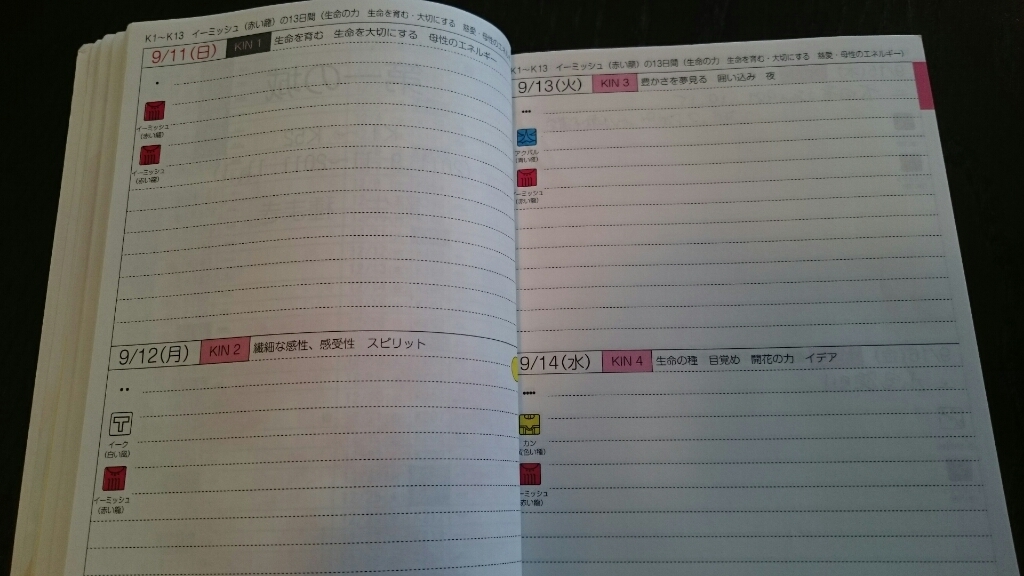 K1～K13　イーミッシュ（赤い龍）の13日間（生命の力　生命を育む・大切にする　慈愛・母性のエネ
9/11(日)　KIN 1　生命を育む　生命を大切にする　母性のエネルギー
•
イーミッシュ
（赤い龍）
イーミッシュ
（赤い龍）
9/12(月)　KIN 2　繊細な感性、感受性　スピリット
••
イーク
（白い風）
イーミッシュ
（赤い龍）
K1～K13　イーミッシュ（赤い龍）の13日間（生命の力　生命を育む・大切にする　慈愛・母性のエネルギー）
9/13(火)　KIN 3　豊かさを夢見る　囲い込み　夜
•••
アクバル
（青い夜）
イーミッシュ
（赤い龍）
9/14(水)　KIN 4　生命の種　目覚め　開花の力　イデア
••••
カン
（黄色い種）
イーミッシュ
（赤い龍）